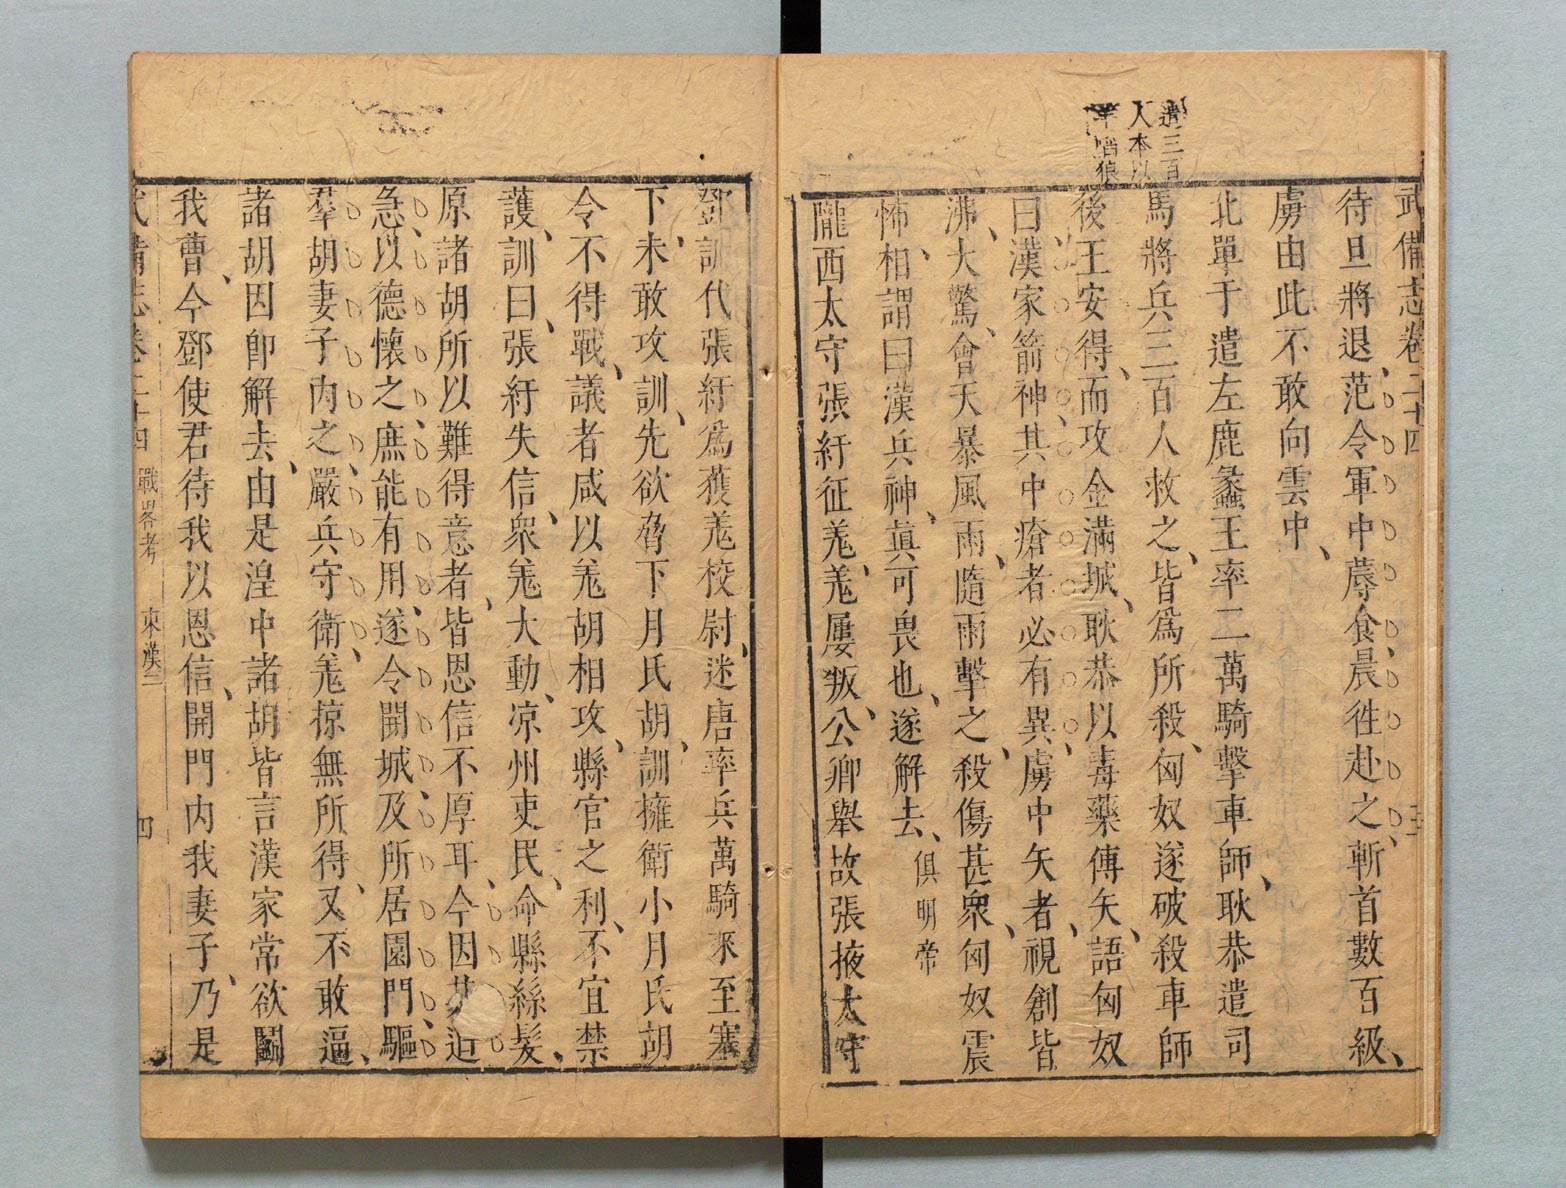 武備志卷二十四
三
待旦將退、范令軍中蓐食、晨徃赴之、斬首數百級、
虜由此不敢向雲中、
北單于遣左鹿蠡王率二萬騎擊車師、耿恭遣司
馬將兵三百人救之、皆爲所殺、匈奴遂破殺車師
後王安得、而攻金滿城、耿恭以毒藥傅矢、語匈奴
曰、漢家箭神、其中瘡者必有異、虜中矢者、視創皆
沸、大驚、會天暴風雨、隨雨擊之、殺傷甚衆、匈奴震
怖、相謂曰漢兵神、眞可畏也、遂解去、俱明帝
隴西太守張紆征羗、羗屢叛、公卿舉故張掖太守
三百
人本以
狼
鄧訓代張紆爲護羗校尉、迷唐率兵萬騎來至塞
下、未敢攻訓、先欲脅下月氏胡、訓擁衛小月氏胡
令不得戰、議者咸以羗胡相攻、縣官之利、不宜禁
護、訓曰、張紆失信、衆羗大動、凉州吏民、命縣絲髮、
原諸胡所以難得意者、皆恩信不厚耳、今因其迫
急、以德懷之、庶能有用、遂令開城及所居園門、驅
羣胡妻子内之、嚴兵守衛、羗掠無所得、又不敢逼、
諸胡因卽解去、由是湟中諸胡皆言漢家常欲鬬
我曹、今鄧使君待我以恩信、開門内我妻子、乃是
武備志卷二十四 戰畧考 東漢三
四